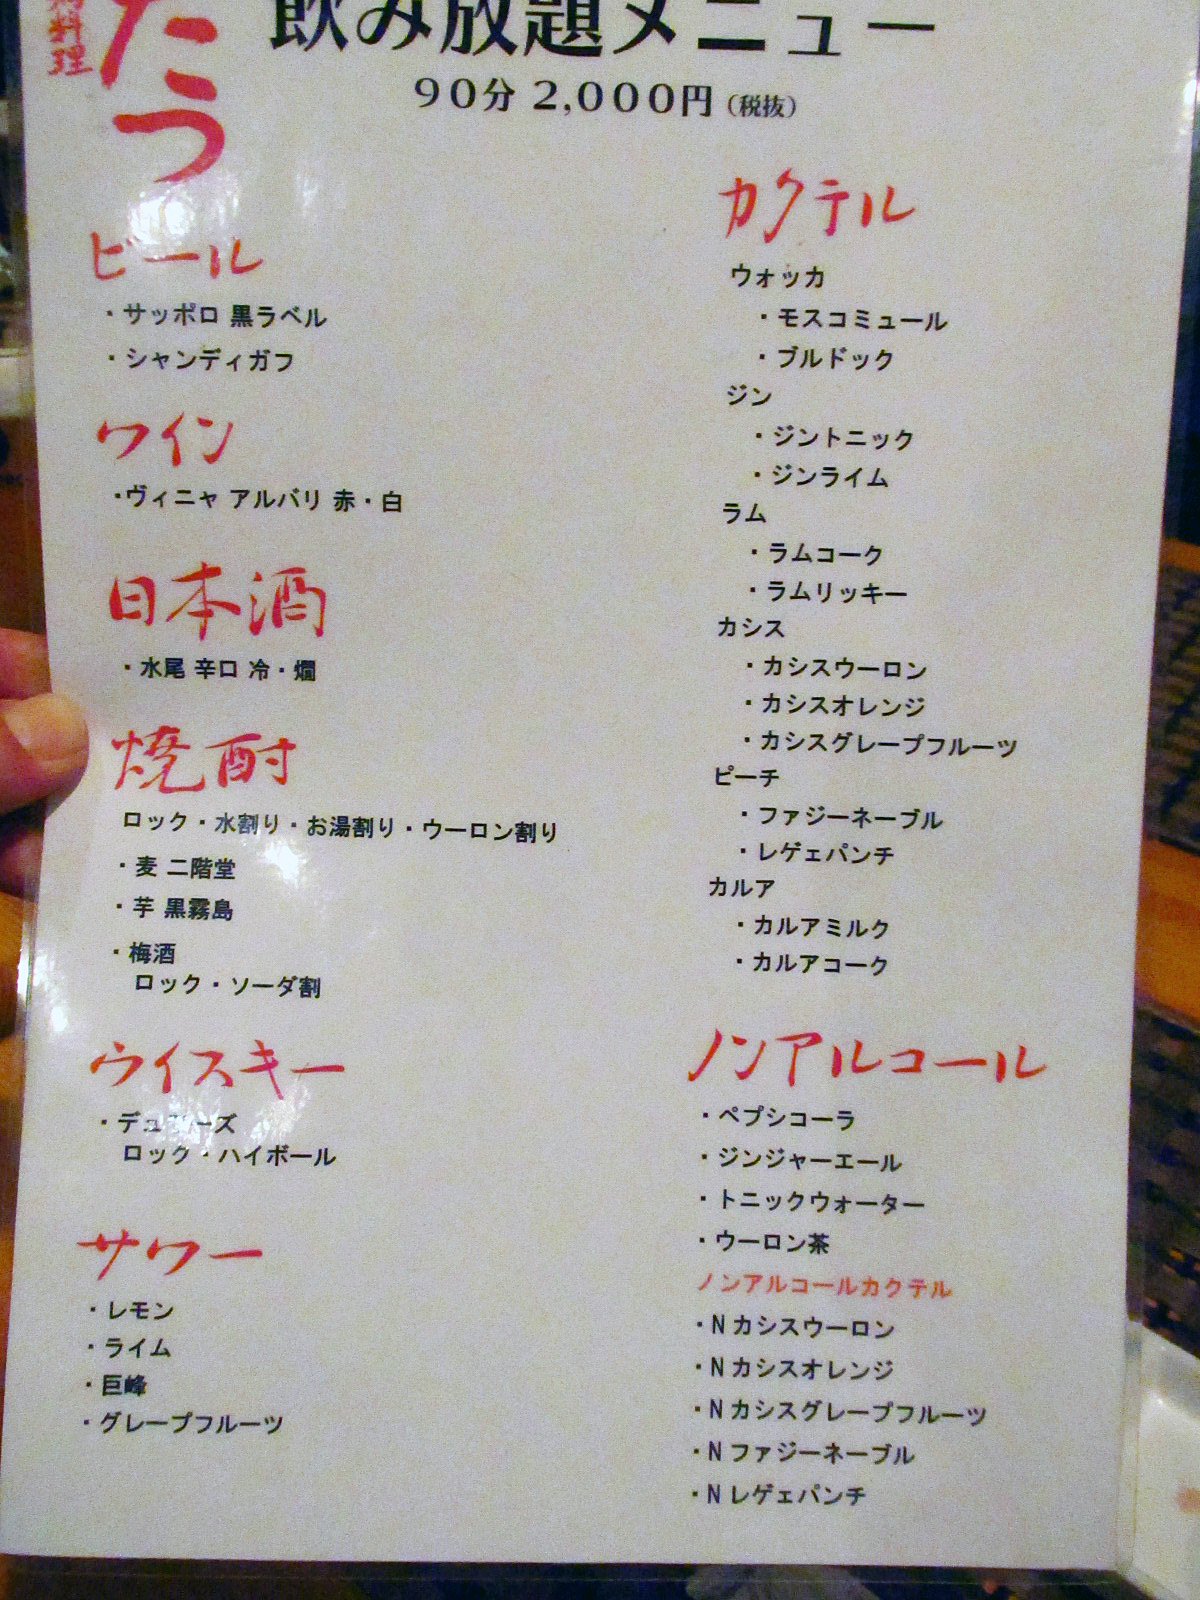 料理
たつ
飲み放題メニュー
90分 2,000円（税抜）
ビール
・サッポロ 黒ラベル
・シャンディガフ
ワイン
・ヴィニャ アルバリ 赤・白
日本酒
・水尾 辛口 冷・燗
焼酎
ロック・水割り・お湯割り・ウーロン割り
・麦 二階堂
・芋 黒霧島
・梅酒
ロック・ソーダ割
ウイスキー
・デュワーズ
ロック・ハイボール
サワー
・レモン
・ライム
・巨峰
・グレープフルーツ
カクテル
ウォッカ
・モスコミュール
・ブルドック
ジン
・ジントニック
・ジンライム
ラム
・ラムコーク
・ラムリッキー
カシス
・カシスウーロン
・カシスオレンジ
・カシスグレープフルーツ
ピーチ
・ファジーネーブル
・レゲェパンチ
カルア
・カルアミルク
・カルアコーク
ノンアルコール
・ペプシコーラ
・ジンジャーエール
・トニックウォーター
・ウーロン茶
ノンアルコールカクテル
・N カシスウーロン
・N カシスオレンジ
・N カシスグレープフルーツ
・N ファジーネーブル
・N レゲェパンチ